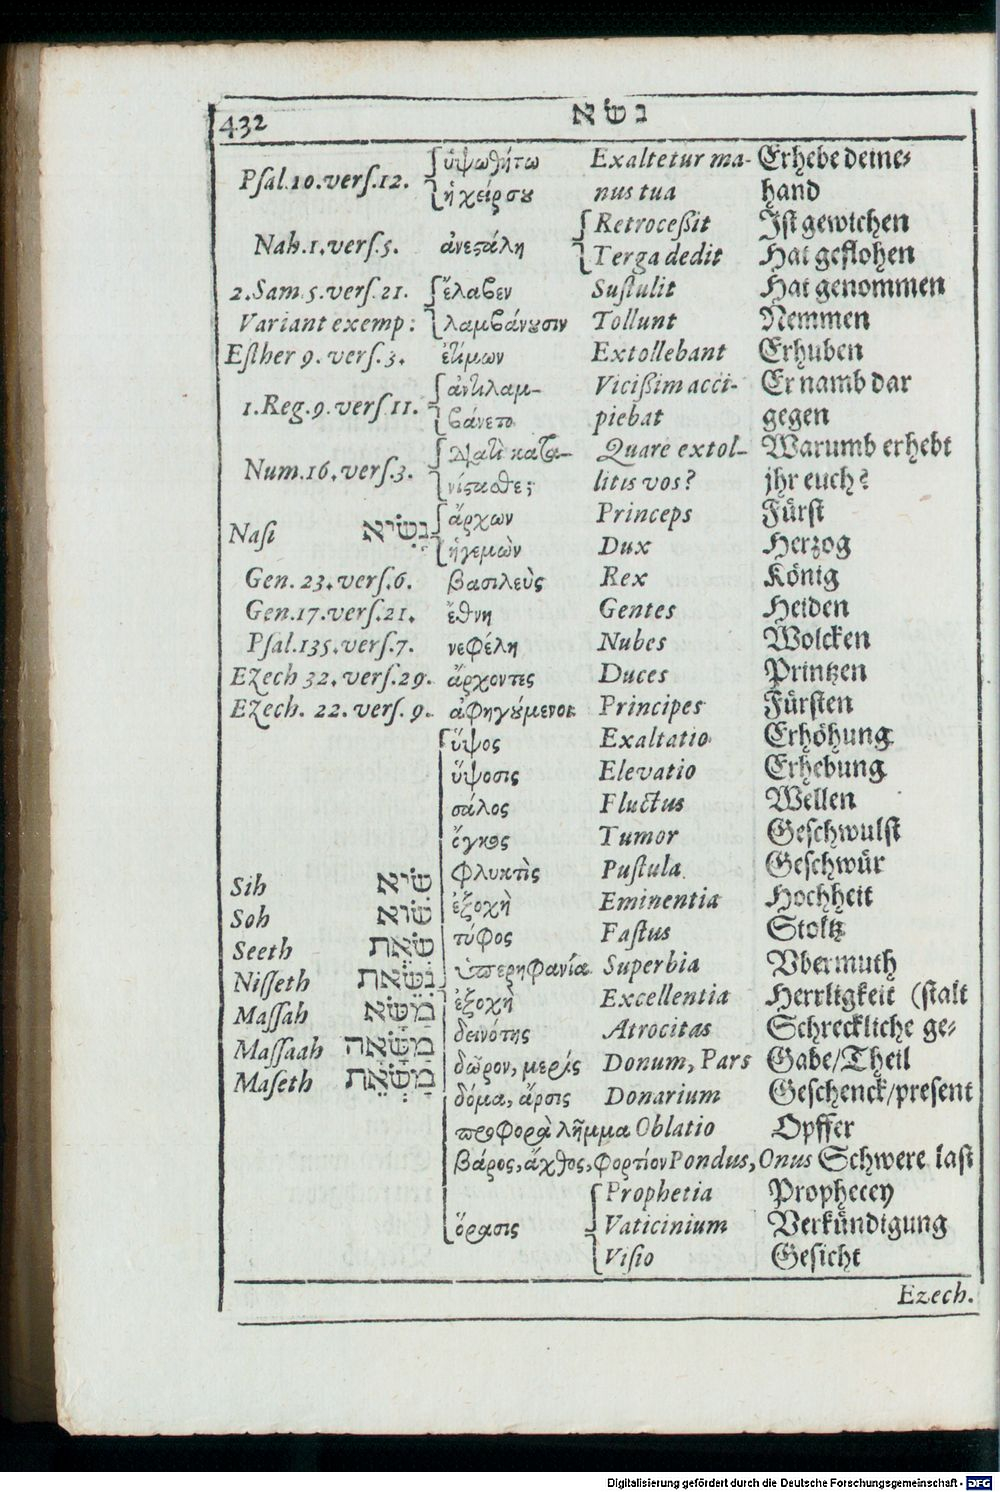 432 נשא
Psal.10.vers.12. ὑψωθήτω Exaltetur ma- Erhebe deine-
ἡ χείρ σου nus tua hand
Retroceßit Ist gewichen
Nah.1.vers.5. ἀνεστάλη Terga dedit Hat geflohen
2.Sam.5.vers.21. ἔλαβεν Sustulit Hat genommen
Variant exemp: λαμβάνουσιν Tollunt Nemmen
Esther 9. vers.3. ἐτίμων Extollebant Erhuben
1.Reg.9.vers.11. ἀντιλαμ- Vicißim acci- Er namb dar
βάνετο piebat gegen
Num.16.vers.3. κατα- Quare extol- Warumb erhebt
νίστασθε; litis vos? jhr euch?
ἄρχων Princeps Fürst
Nasi נָשִׂיא ἡγεμὼν Dux Herzog
Gen. 23.vers.6. βασιλεὺς Rex König
Gen.17.vers.21. ἔθνη Gentes Heiden
Psal.135.vers.7. νεφέλη Nubes Wolcken
Ezech 32.vers.29. ἄρχοντες Duces Printzen
Ezech. 22. vers. 9. ἀφηγούμενοι Principes Fürsten
ὕψος Exaltatio Erhöhung
ὕψοσις Elevatio Erhebung
σάλος Fluctus Wellen
ὄγκος Tumor Geschwulst
φλυκτὶς Pustula Geschwür
Sih שִׂיא ἐξοχὴ Eminentia Hochheit
Soh שׂוֹא τύφος Fastus Stoltz
Seeth שְׂאֵת ὑπερηφανία Superbia Vbermuth
Nisseth נִשֵּׂאת ἐξοχὴ Excellentia Herrligkeit (stalt
Massah מַשָּׂא δεινότης Atrocitas Schreckliche ge-
Massaah מַשָּׂאָה δῶρον, μερίς Donum, Pars Gabe/Theil
Maseth מַשְׂאֵת δόμα, ἄρσις Donarium Geschenck/present
προφορὰ λῆμμα Oblatio Opffer
βάρος, ἄχθος, φορτίον Pondus, Onus Schwere last
Prophetia Prophecey
ὅρασις Vaticinium Verkündigung
Visio Gesicht
Ezech.
Digitalisierung gefördert durch die Deutsche Forschungsgemeinschaft - DFG